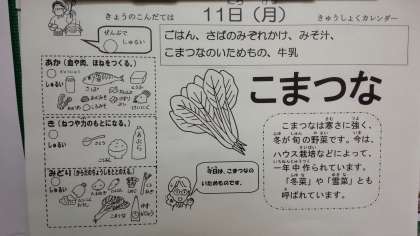 きょうのこんだては
11日(月)
きゅうしょくカレンダー
ごはん、さばのみぞれかけ、みそ汁、
こまつなのいためもの、牛乳
ぜんぶで
しゅるい
あか(血や肉、ほねをつくる。)
しゅるい
き(ねつや力のもとになる。)
しゅるい
みどり(からだのちょうしをととのえる。)
しゅるい
こまつな
今日は、こまつなの
いためものです。
こまつな
こまつなは寒さに強く、
冬が旬の野菜です。今は、
ハウス栽培などによって、
一年中作られています。
「冬菜」や「雪菜」とも
呼ばれています。